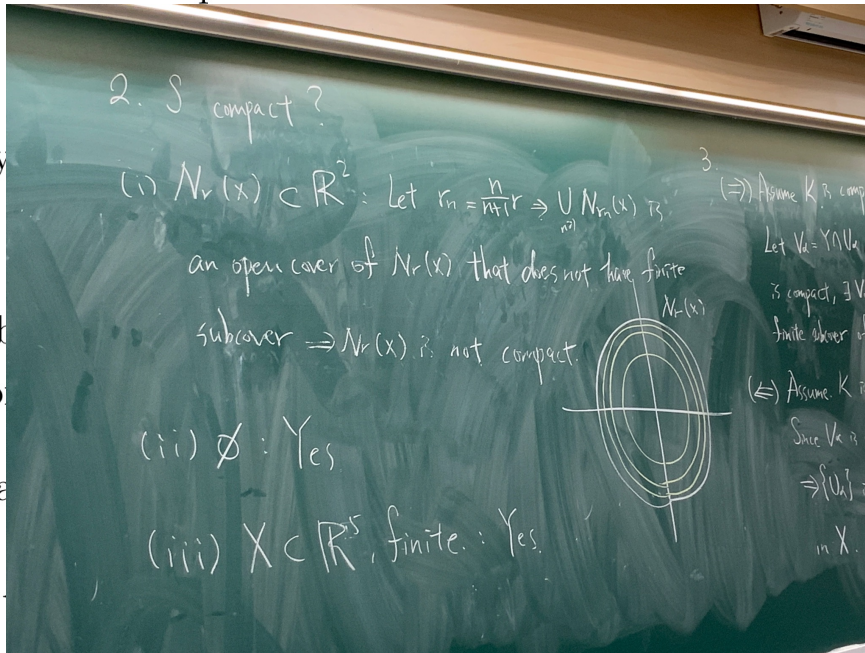 2. S compact?
(i) Nr(x) ⊂ ℝ²: Let rn = n/n+1 r ⇒ ∪ n≥1 Nrn(x) is
an open cover of Nr(x) that does not have finite
subcover ⇒ Nr(x) is not compact.
Nr(x)
(ii) ∅ : Yes
(iii) X ⊂ ℝ⁵, finite. : Yes.
3.
(⇒) Assume K is comp
Let Vα = Y∩Uα
is compact, ∃ V
finite subcover of
(⇐) Assume K i
Since Vα is
⇒ {Uα}
in X.